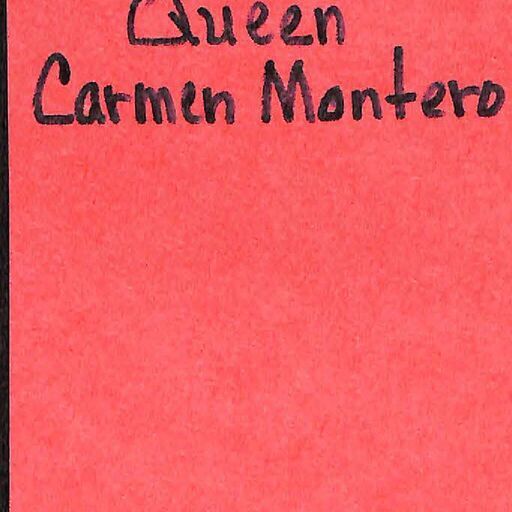 Queen
Carmen Montero